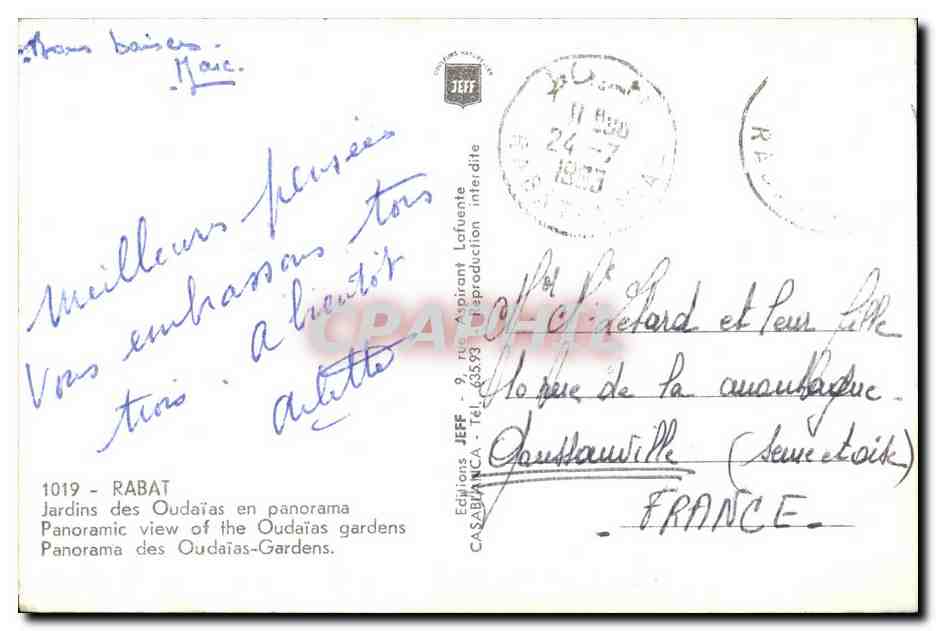 Bons baisers.
Marc.
Meilleurs pensées
Vous embrassons tous
trois. A bientôt
Arlette
1019 - RABAT
Jardins des Oudaïas en panorama
Panoramic view of the Oudaïas gardens
Panorama des Oudaïas-Gardens.
JEFF
Editions JEFF - 9, rue Aspirant Lafuente
CASABLANCA - Tél. 635.93 - Reproduction interdite
24 -7
RABAT
RA
CPAPHIL
et leur fille
rue de la
Goussainville (Seine et oise)
- FRANCE -